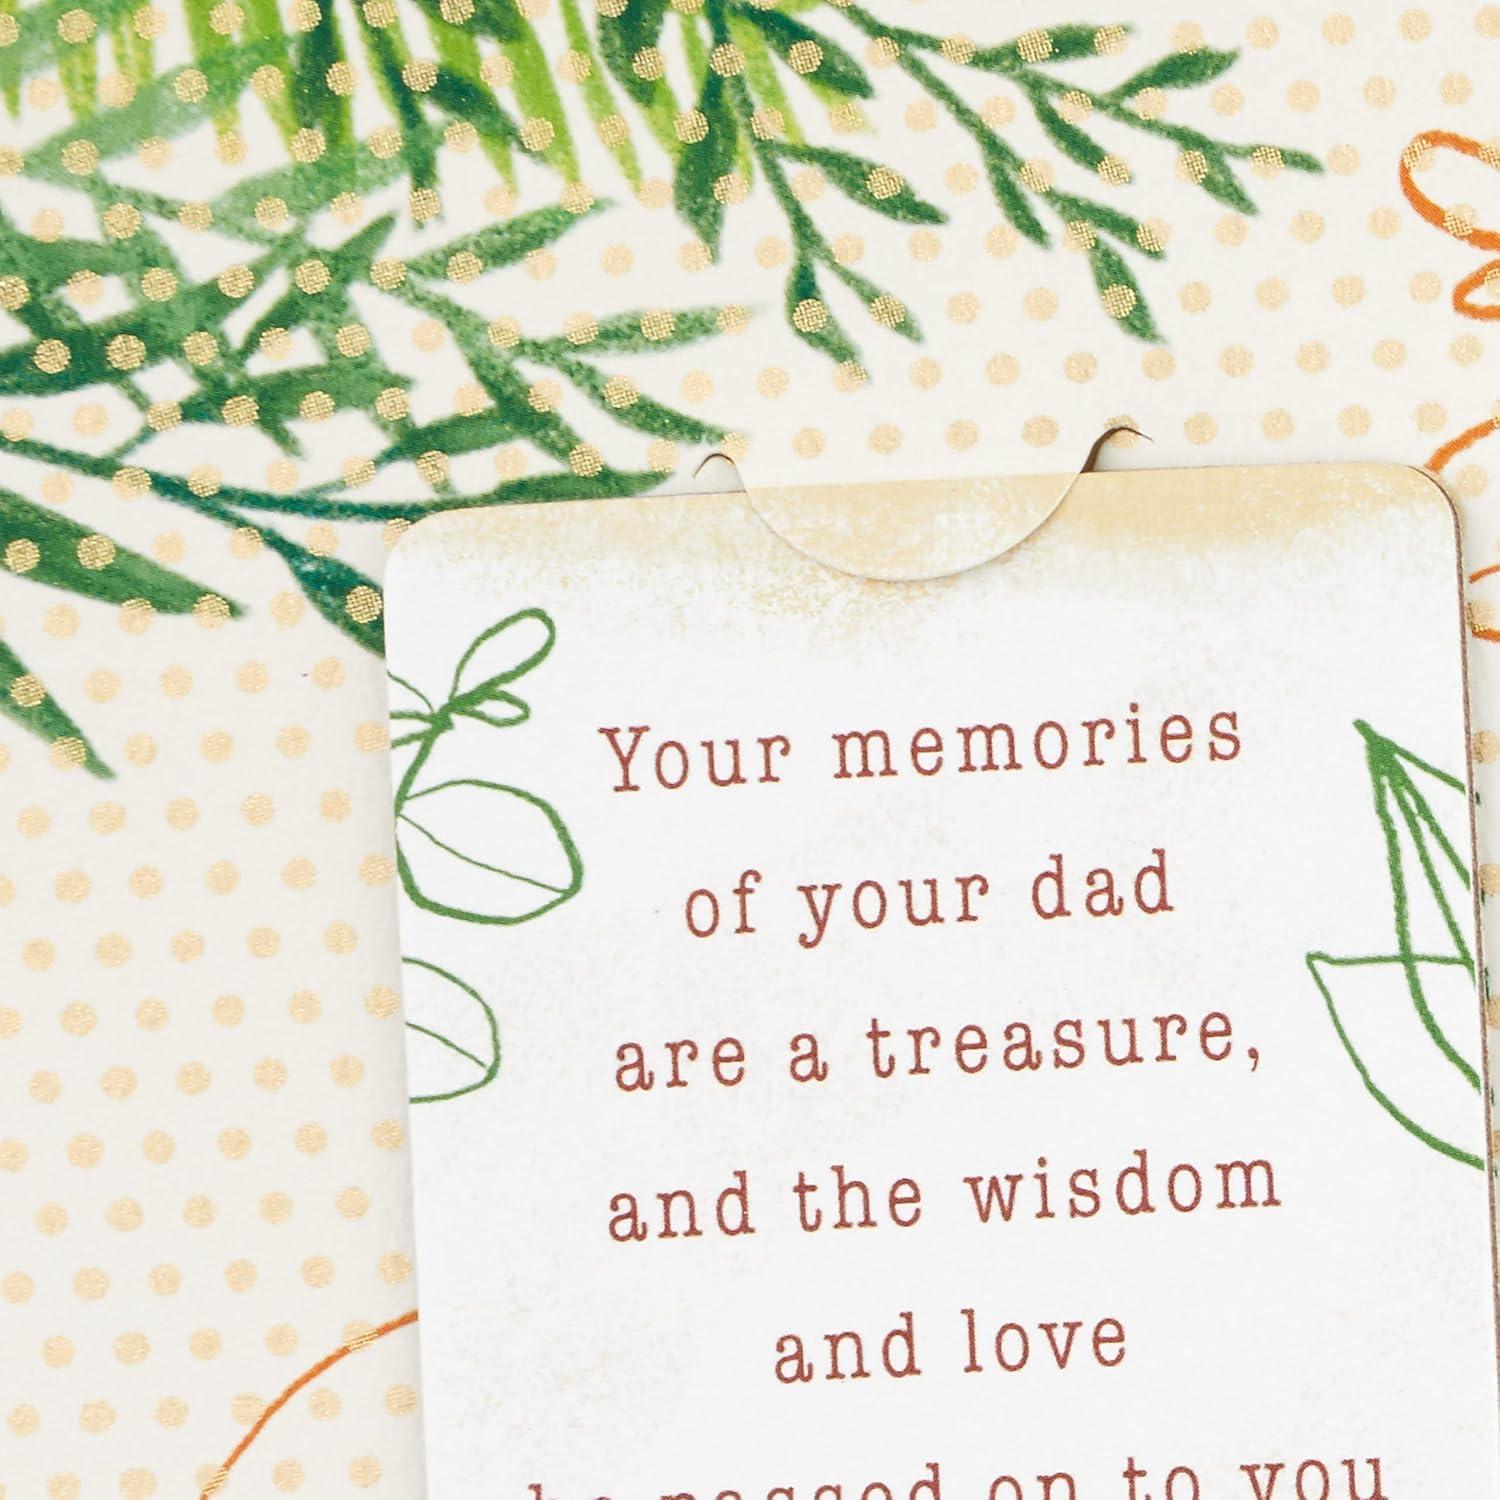 Your memories
of your dad
are a treasure,
and the wisdom
and love
he passed on to you